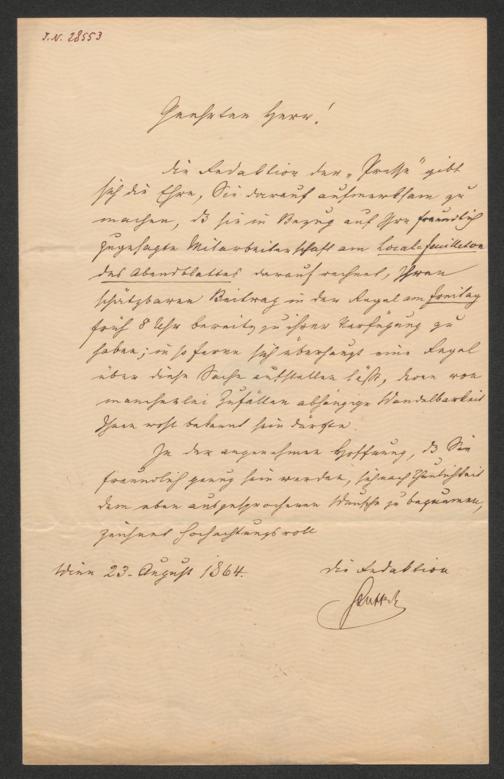 I.N. 28553
Geehrter Herr!
Die Redaktion der „Presse“ gibt
sich die Ehre, Sie darauf aufmerksam zu
machen, daß sie in Bezug auf Ihre freundlich
zugesagte Mitarbeiterschaft am Localfeuilleton
des Abendblattes darauf rechnet, Ihren
schätzbaren Beitrag in der Regel am Freitag
früh 8 Uhr bereits zu ihrer Verfügung zu
haben; in so ferne sich überhaupt eine Regel
über diese Sache aufstellen läßt, deren von
mancherlei Zufällen abhängige Wandelbarkeit
Ihnen wohl bekannt sein dürfte.
In der angenehmen Hoffnung, daß Sie
freundlich genug sein werden, sich nach Thunlichkeit
dem eben ausgesprochenen Wunsche zu bequemen,
zeichnet hochachtungsvoll
Wien 23. August 1864.
die Redaktion